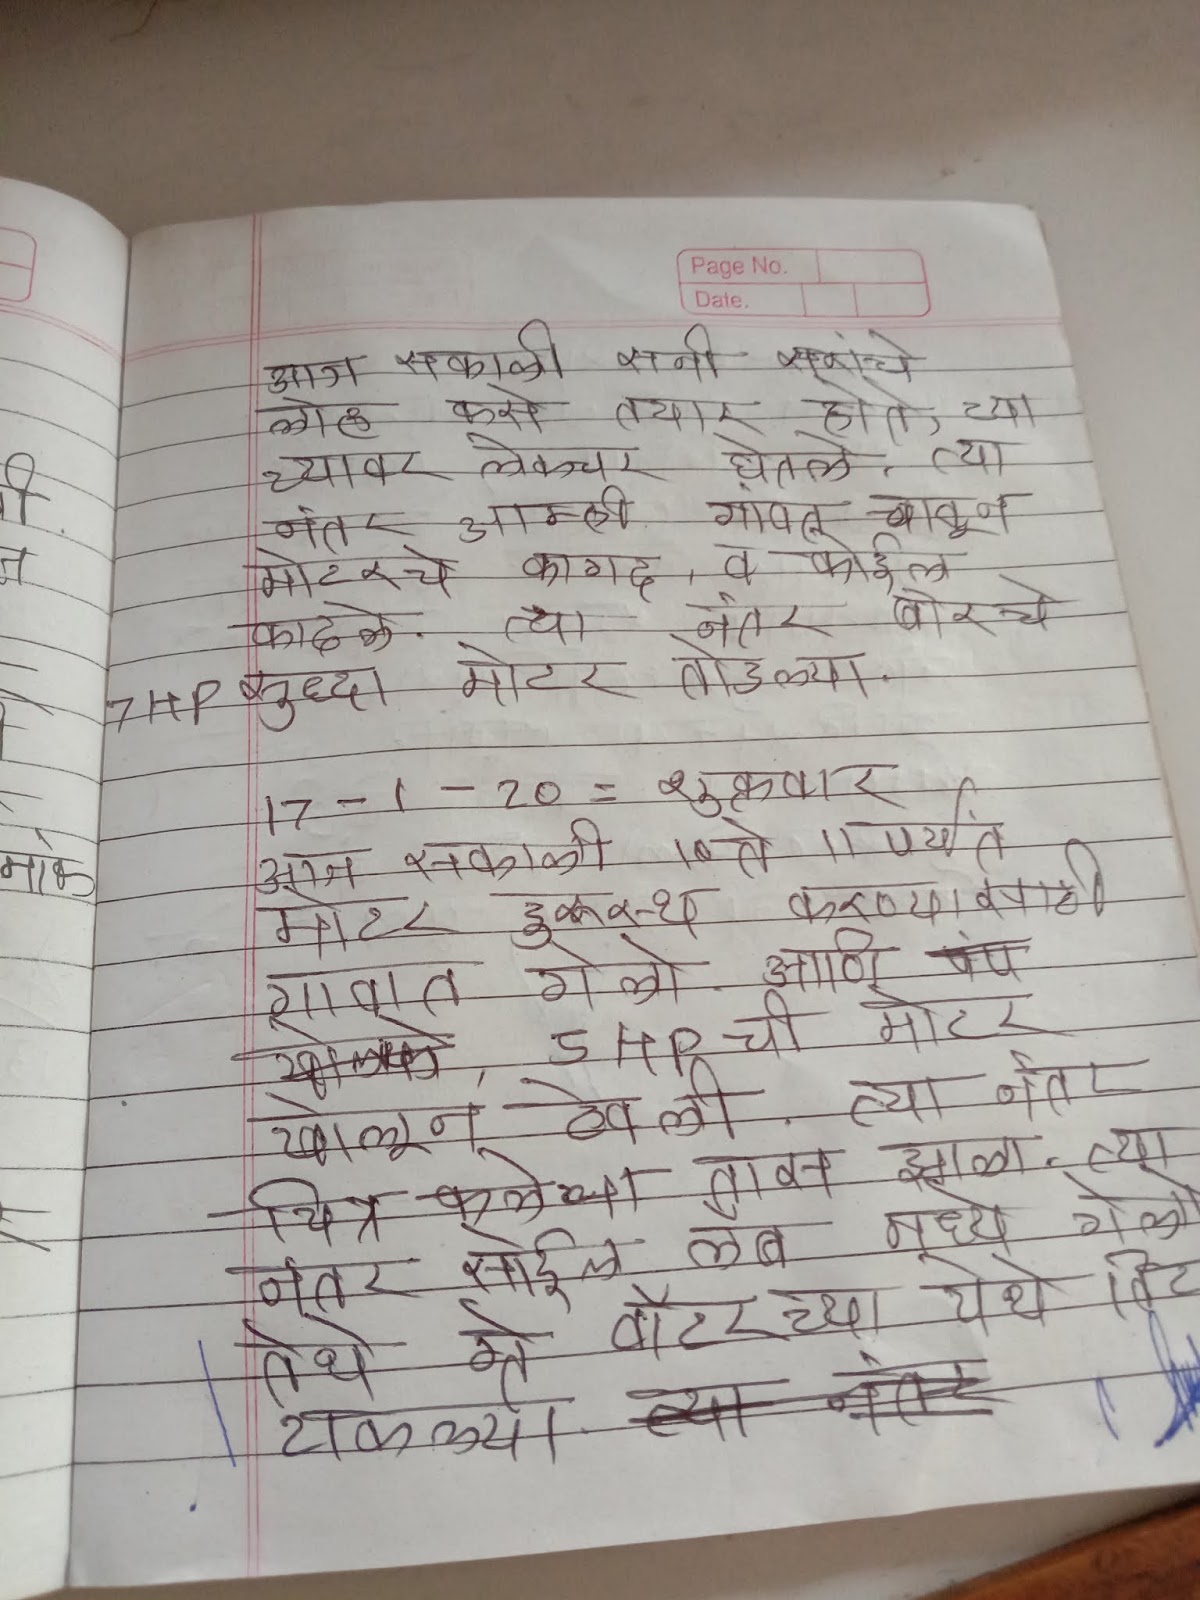 Page No.
Date.
आज सकाळी सनी सरांचे
लोह कसे तयार होते, त्या
च्यावर लेक्चर घेतले. त्या
नंतर आम्ही
मोटरचे कागद, व कोईल
काढले. त्या नंतर बोरचे
7HP सुध्दा मोटर तोडल्या.
17-1-20 = शुक्रवार
आज सकाळी 10 ते 11 पर्यंत
मोटर दुरुस्थ करण्यासाठी
गावात गेलो. आणि पंप
खोलले, 5 HP ची मोटर
खोलून ठेवली. त्या नंतर
चित्र कलेचा तास झाला. त्या
नंतर सोईल लॅब मध्ये गेलो
तेथे मे वॉटरच्या येथे विट
टाकल्या. त्या नंतर